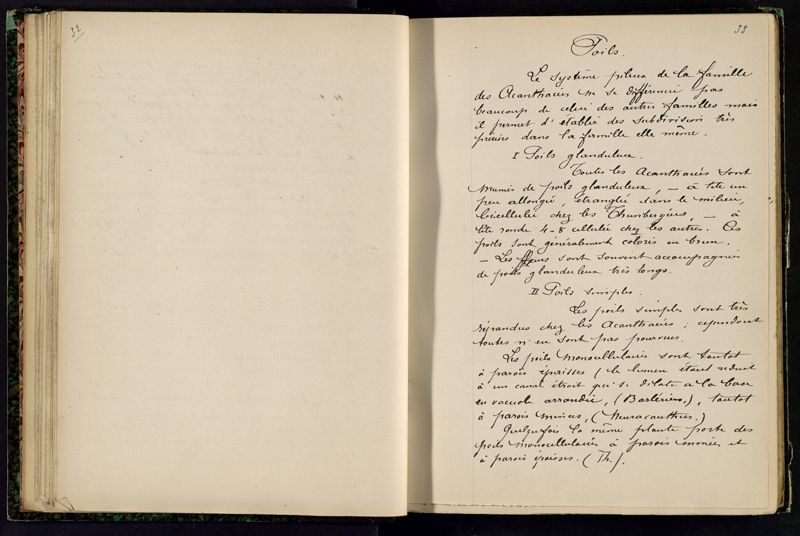 32
33
Poils.
Le système pileux de la famille
des Acanthacées ne se différencie pas
beaucoup de celui des autres familles mais
il permet d'établir des subdivisions très
précises dans la famille elle même.
I Poils glanduleux.
Toutes les Acanthacées sont
munies de poils glanduleux, — à tête un
peu allongée, étranglée dans le milieu,
bicellulée chez les Thunbergiées, — à
tête ronde 4-8 cellulée chez les autres. Ces
poils sont généralement colorés en brun.
— Les fleurs sont souvent accompagnées
de poils glanduleux très longs.
II Poils simples.
Les poils simples sont très
répandus chez les Acanthacées ; cependant
toutes n'en sont pas pourvues.
Les poils monocellulaires sont tantôt
à parois épaisses (le lumen étant réduit
à un canal étroit qui se dilate à la base
en vacuole arrondie, (Barlériées.), tantôt
à parois minces, (Neuracanthées.)
Quelquefois la même plante porte des
poils monocellulaires à parois minces et
à parois épaisses. (Th.).